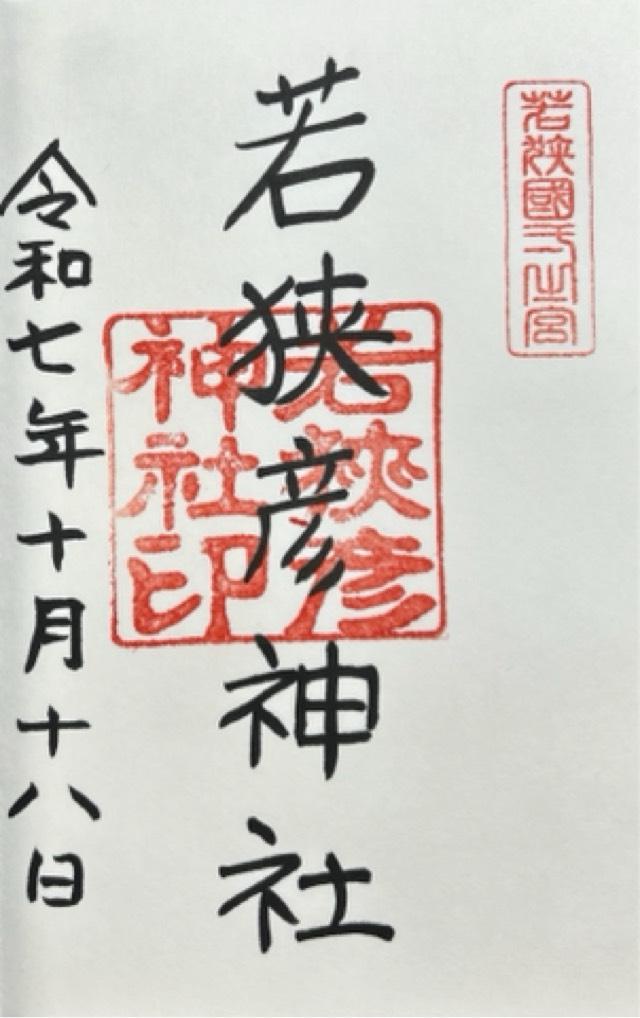 若狹國弌之宮
若狭彦神社
若狹彦
神社印
令和七年十月十八日